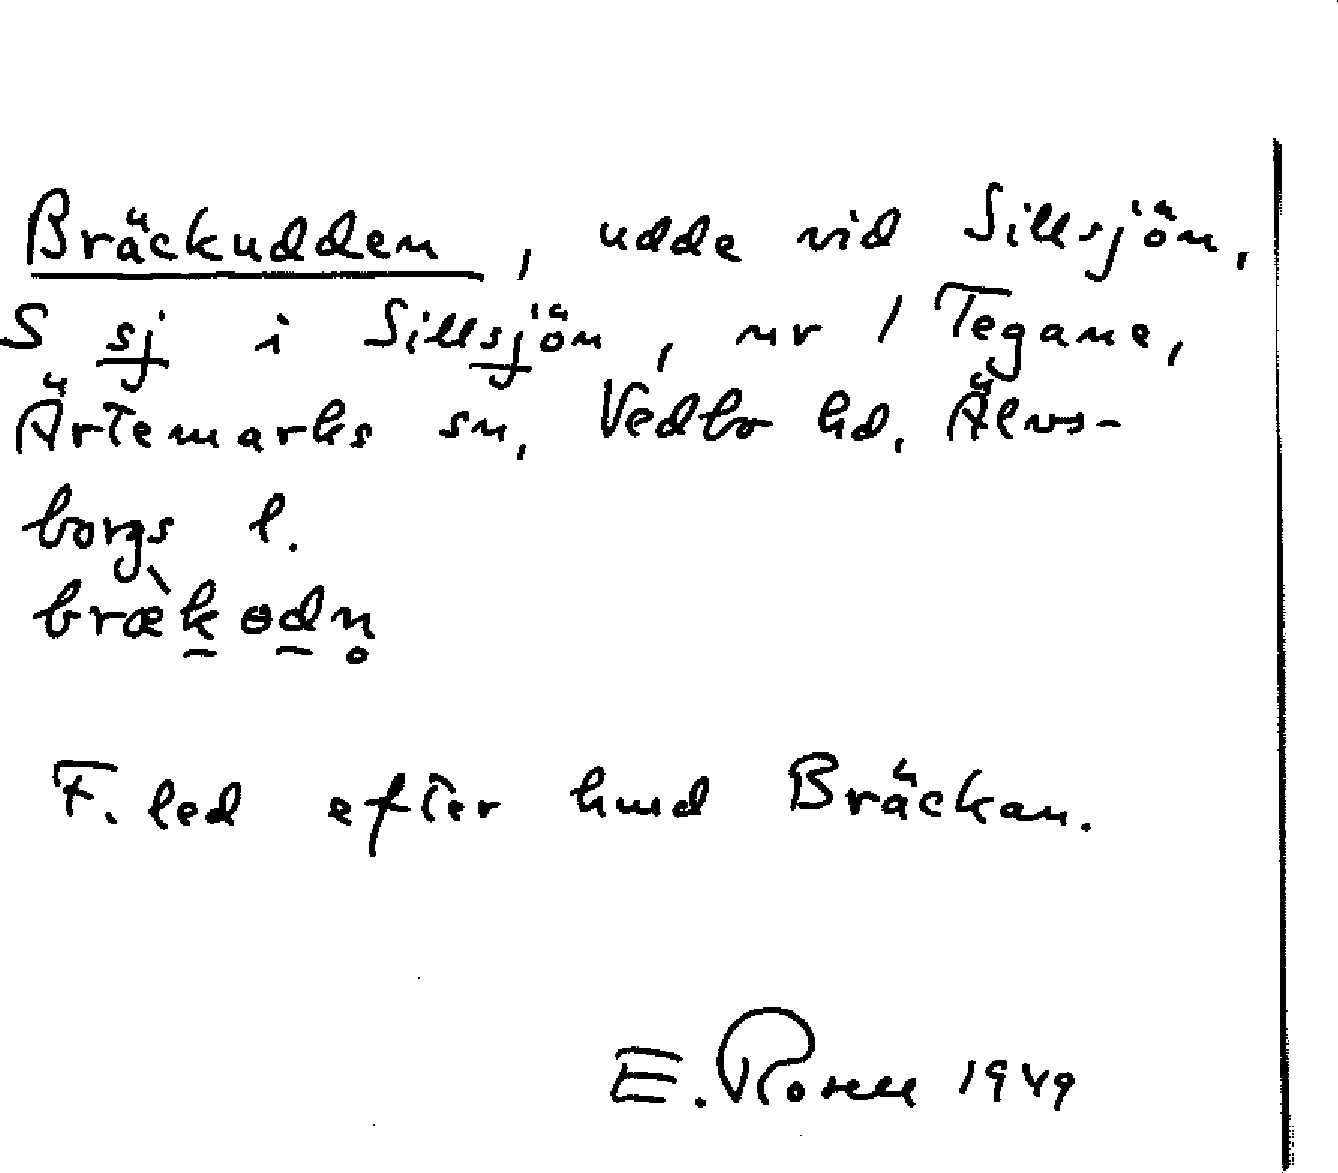 Bräckudden, udde vid Sillsjön,
S sj i Sillsjön, nr 1 Tegane,
Ärtemarks sn, Vedbo hd, Älvs-
borgs l.
bræ̀k̲od̲n̥
F. led efter hmd Bräckan.
E. Rosell 1949